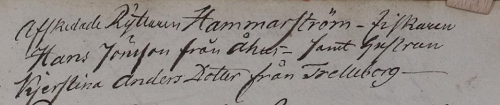 Afskedade Ryttaren Hammarström - fiskaren
Hans Jönson från Åhus - samt hustrun
Kjerstina Anders Doter från Trelleborg -